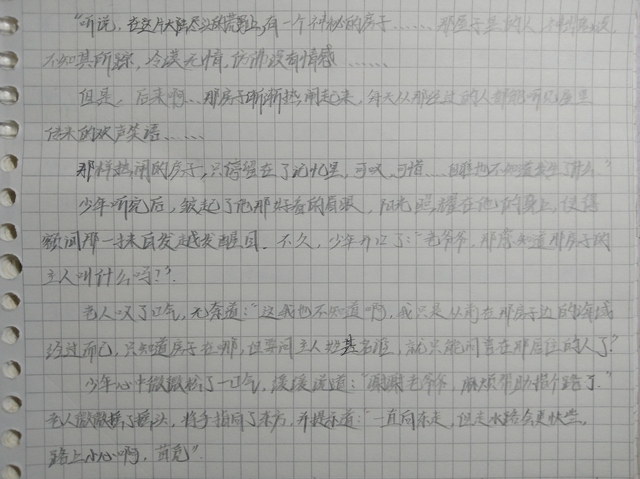 "听说,在这片大陆尽头的荒野上,有一个神秘的房子……那屋子里的人,
不知其所踪,冷漠无情,仿佛没有情感……
但是,后来啊…那房子渐渐热闹起来,每天从那经过的人都能听见屋里
传来的欢声笑语……
那样热闹的房子,只停留在了记忆里,可叹,可惜…
少年听完后,皱起了他那好看的眉眼,阳光照耀在他的身上,使得
额间那一抹白发越发醒目。不久,少年开口了:"老爷爷,那您知道那房子的
主人叫什么吗?"
老人叹了口气,无奈道:"这我也不知道啊,我只是从前在那房子边的
经过而已,只知道房子在哪,但要问主人姓甚名谁,就只能问曾在那居住的人了?
少年心中微微松了一口气,缓缓说道:"谢谢老爷爷,麻烦帮助指个路了"
老人微微摇了摇头,将手指向了东方,并提示道:"一直向东走,但走水路会更快些。
路上小心啊,